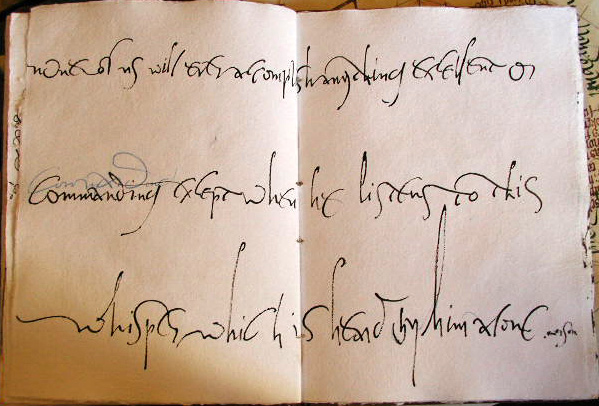 none of us will ever accomplish anything excellent or
commanding except when he listens to this
whisper which is heard by him alone. emerson